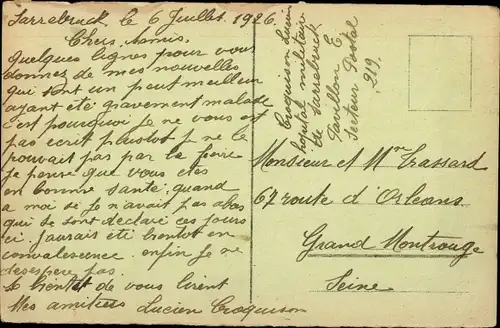 Sarrebruck, le 6 Juillet 1926.
Chers Amis.
Quelques lignes pour vous
donnez de mes nouvelles
qui sont un peut meilleur
ayant été gravement malade
c'est pourquoi je ne vous est
pas ecrit plustot je ne le
pouvait pas par la
je pense que vous etes
en bonne santé, quand
a moi si je n'avait pas
qui se sont declaré ces jours
ci j'aurais été bientot en
convalesence. enfin je ne
desespere pas.
de vous lirent
Mes amitiees Lucien Croquison
Croquison Lucien
hopital militaire
de Sarrebruck
Pavillon E.
Secteur Postal
219.
Monsieur et Mme Trassard
67 route d'Orleans
Grand Montrouge
Seine